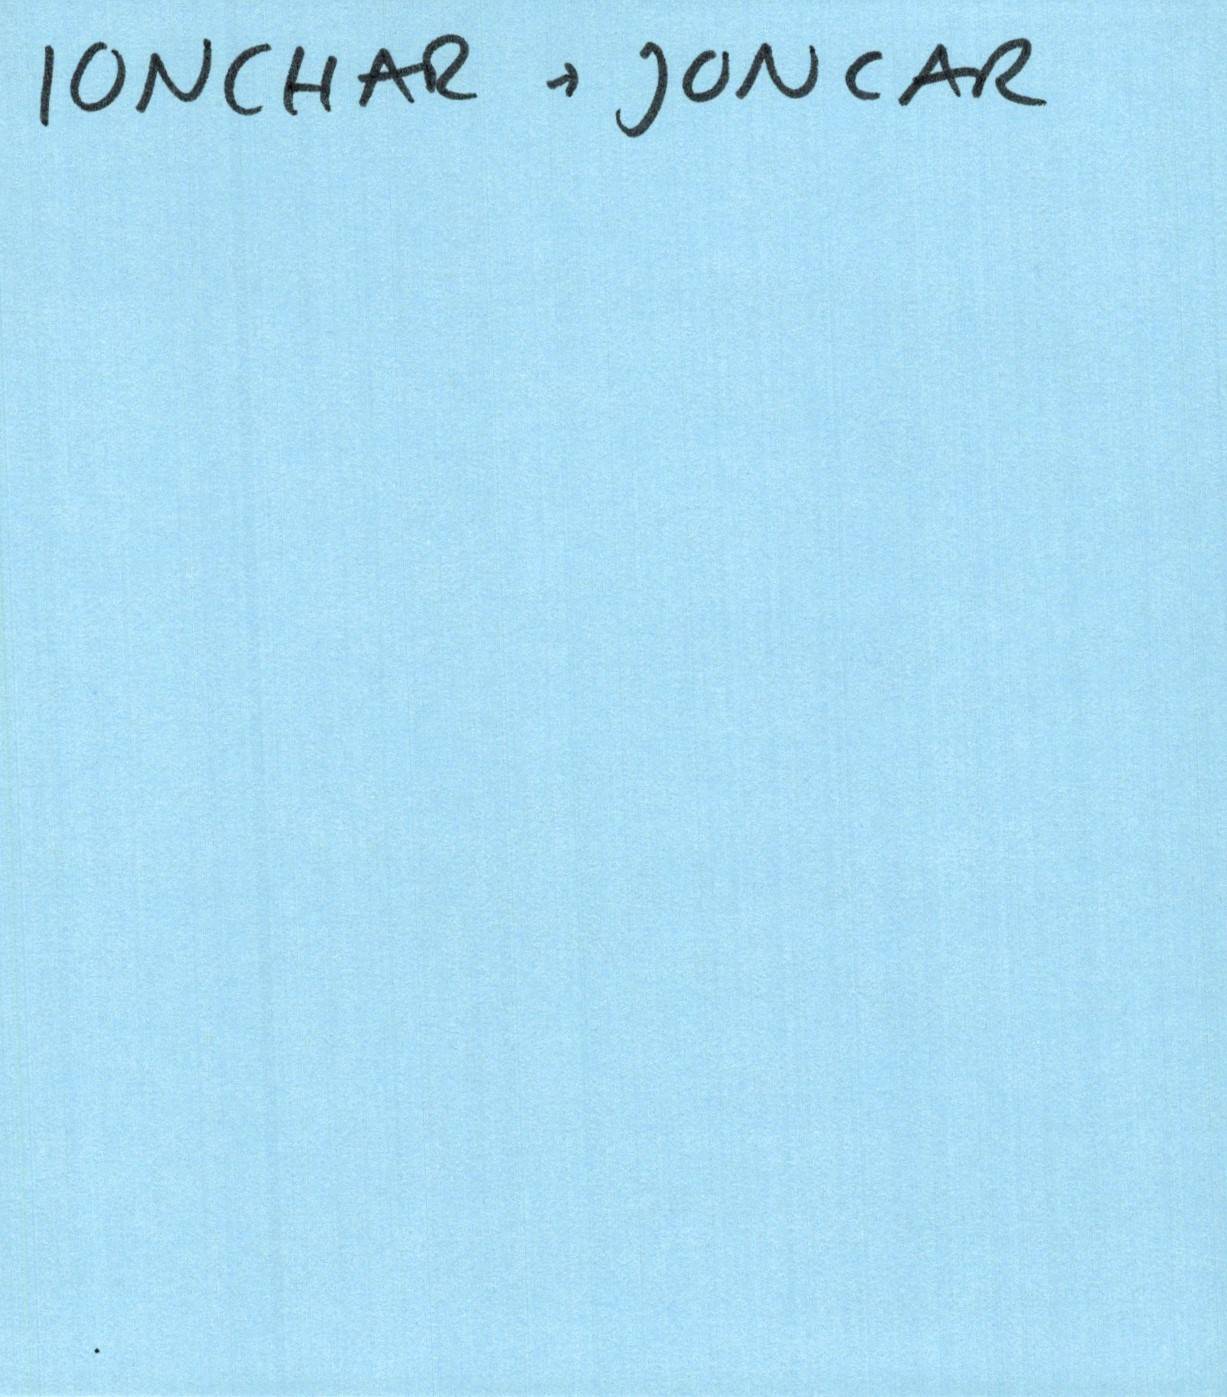 IONCHAR → JONCAR